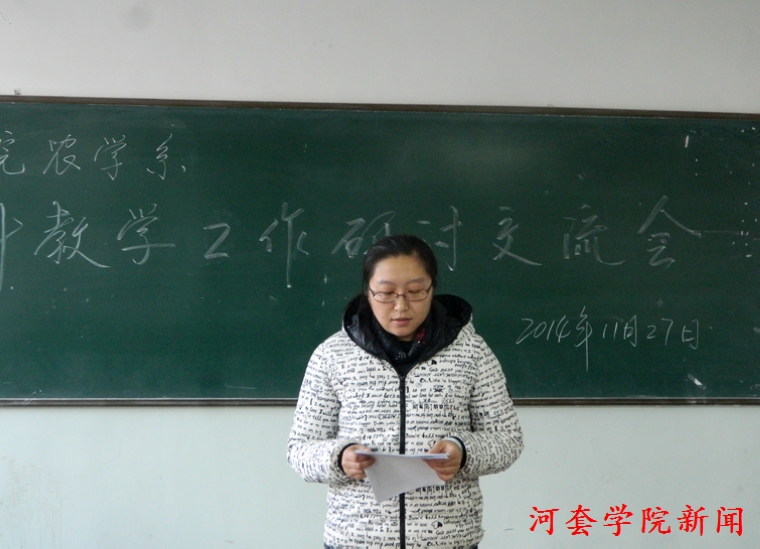 院农学系
教学工作研讨交流会
2014年11月27日
河套学院新闻